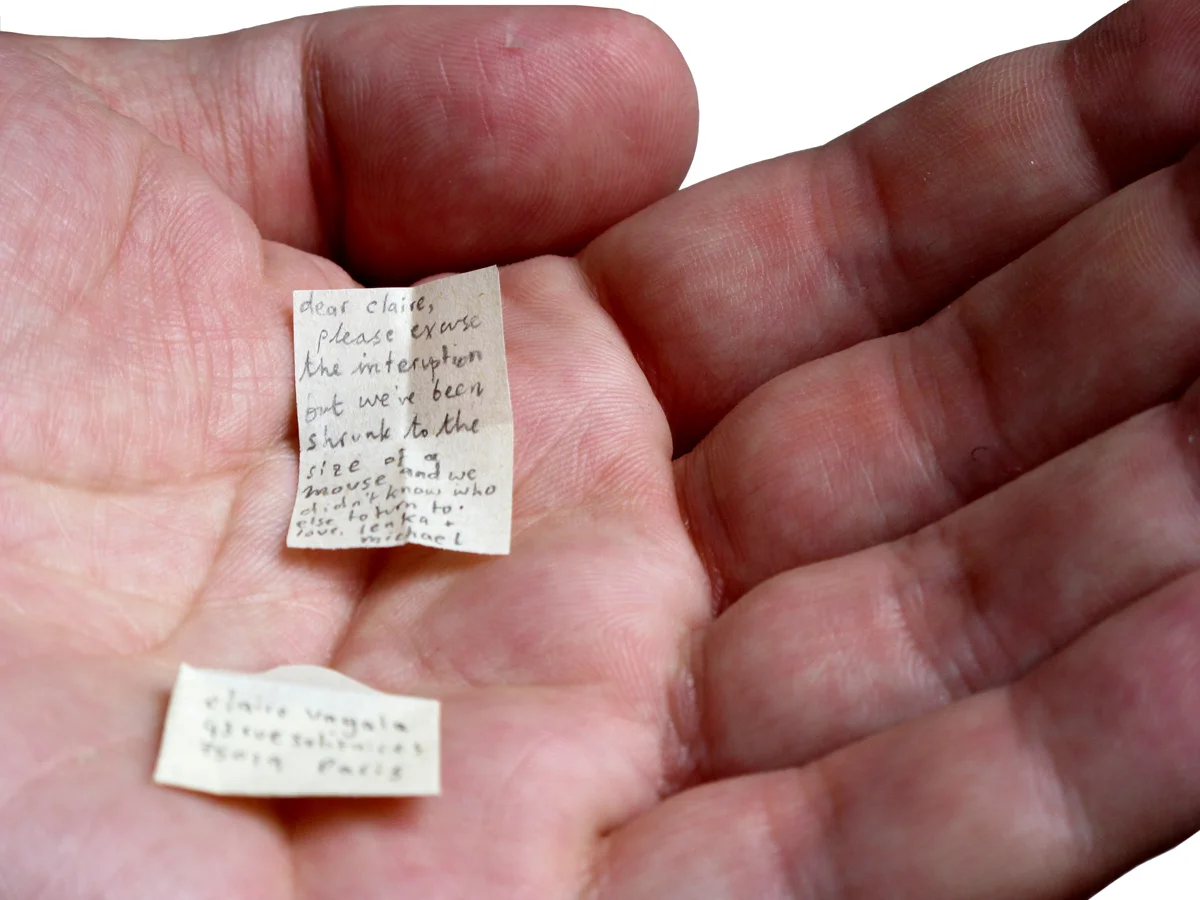 dear claire,
please excuse
the interuption
but we've been
shrunk to the
size of a
mouse and we
didn't know who
else to turn to.
love. lenka +
michael
claire vagala
43 rue solitaires
75019 Paris